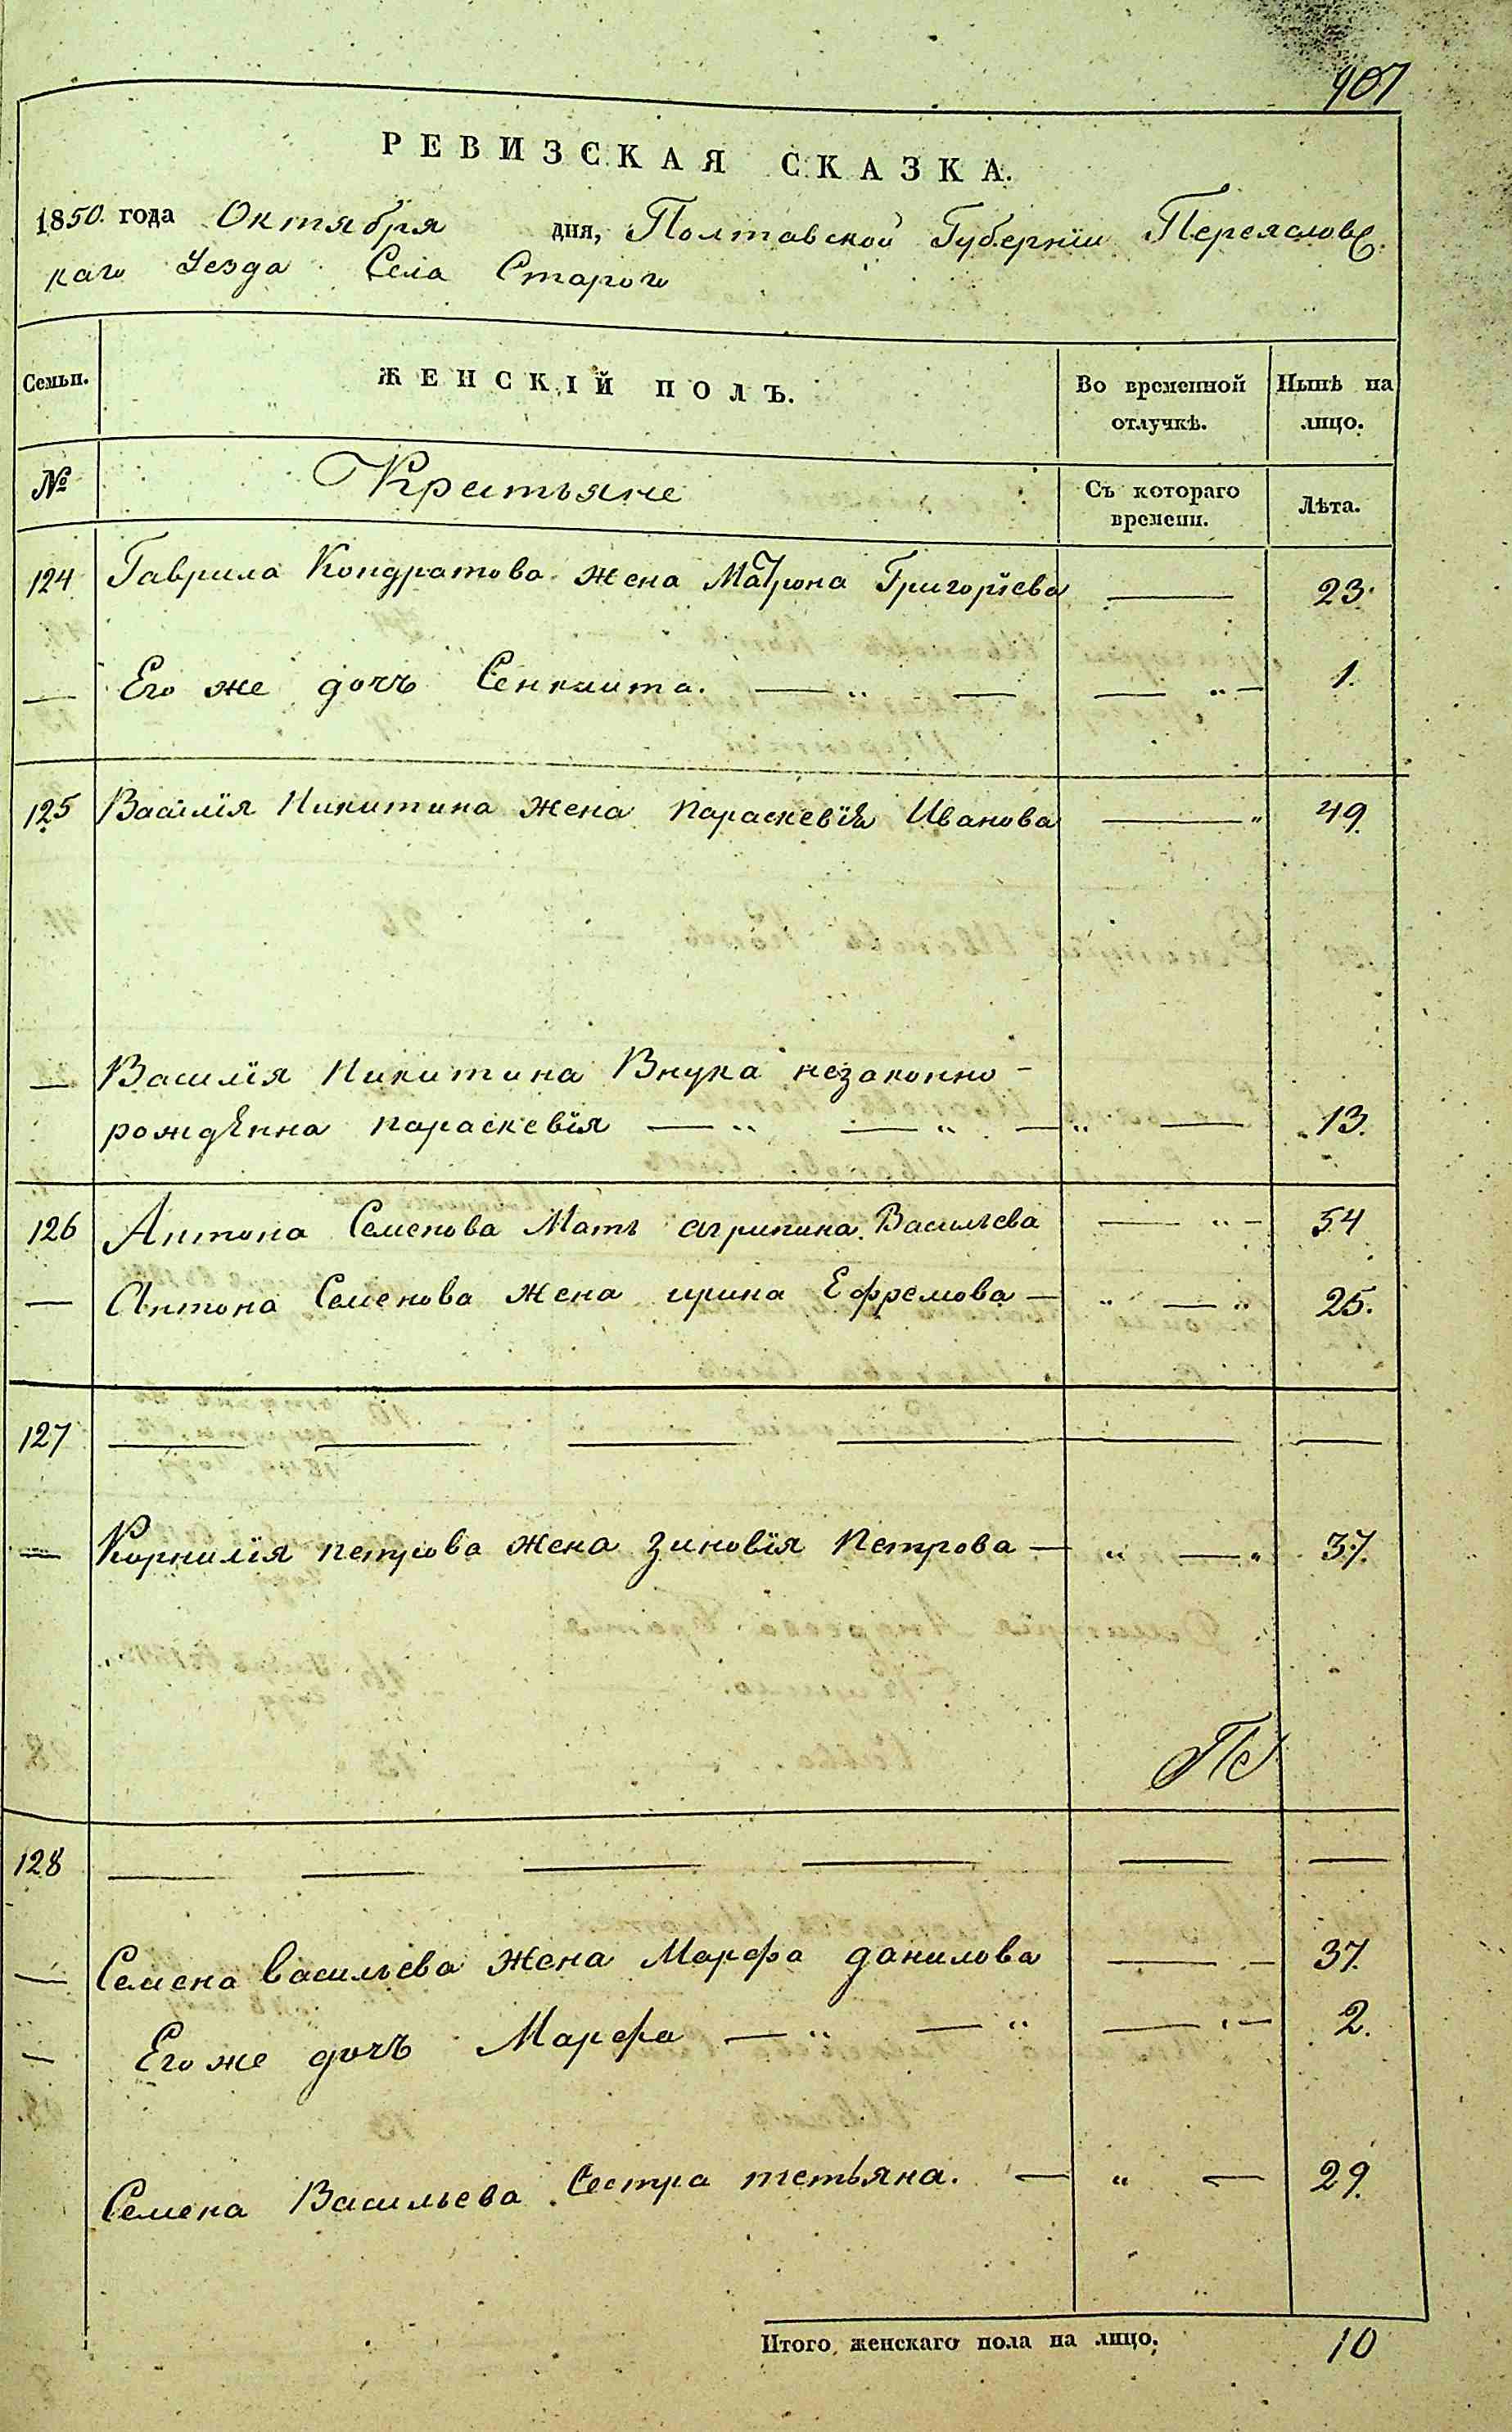 407
РЕВИЗСКАЯ СКАЗКА.
1850. года Октября дня, Полтавской Губернїи Переяславс
каго Уезда Села Старого
Семьи. ЖЕНСКІЙ ПОЛЪ. Во временной отлучкѣ. Нынѣ на лицо.
№ Крестьяне Съ котораго времени. Лѣта.
124 Гаврила Кондратова жена Матрона Григорїева — 23.
— Его же дочъ Сенклита. — „ — — „ — 1.
125 Василїя Никитина жена Параскевїя Иванова — „ 49.
— Василїя Никитина Внука незаконно-
рожденна параскевїя — „ — „ — „ — 13.
126 Антона Семенова Мать агрипина Васильева — „ — 54
— Антона Семенова жена ирина Ефремова — „ — „ 25.
127 — — — — — —
— Корнилїя петрова жена зиновїя Петрова — „ — „ 37.
128 — — — — — —
— Семена васильева жена Марфа данилова — — 37.
— Его же дочъ Марфа — „ — „ — „ — 2.
Семена Васильева Сестра тетьяна. — „ — 29.
Итого женскаго пола на лицо. 10